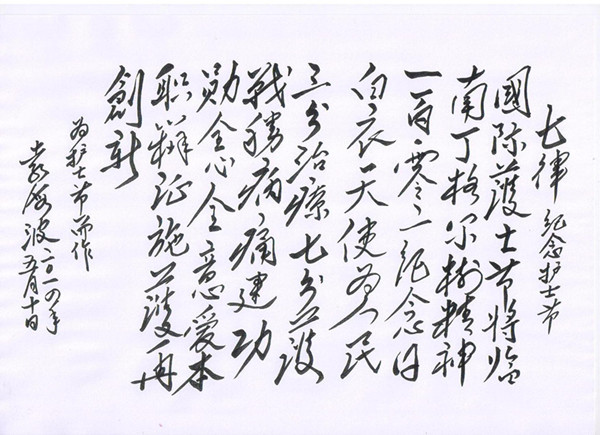 七律 纪念护士节
國际護士节将临
南丁格尔树精神
一百零一纪念日
白衣天使为人民
三分治療七分護
戰勝病痛建功
勋全心全意爱本
职辩证施護再
創新
为护士节而作
袁海波二〇一四年
五月十日